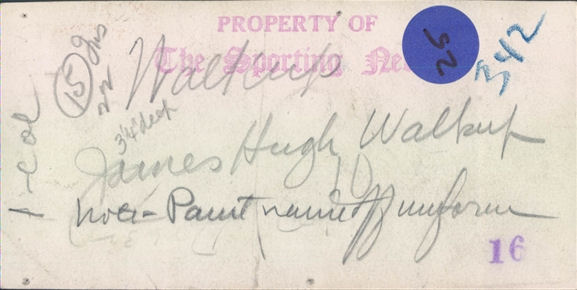 PROPERTY OF
The Sporting News
26
342
15
Walkup
3/4" deep
1-col
James Hugh Walkup
10
note - Paint name off uniform
16